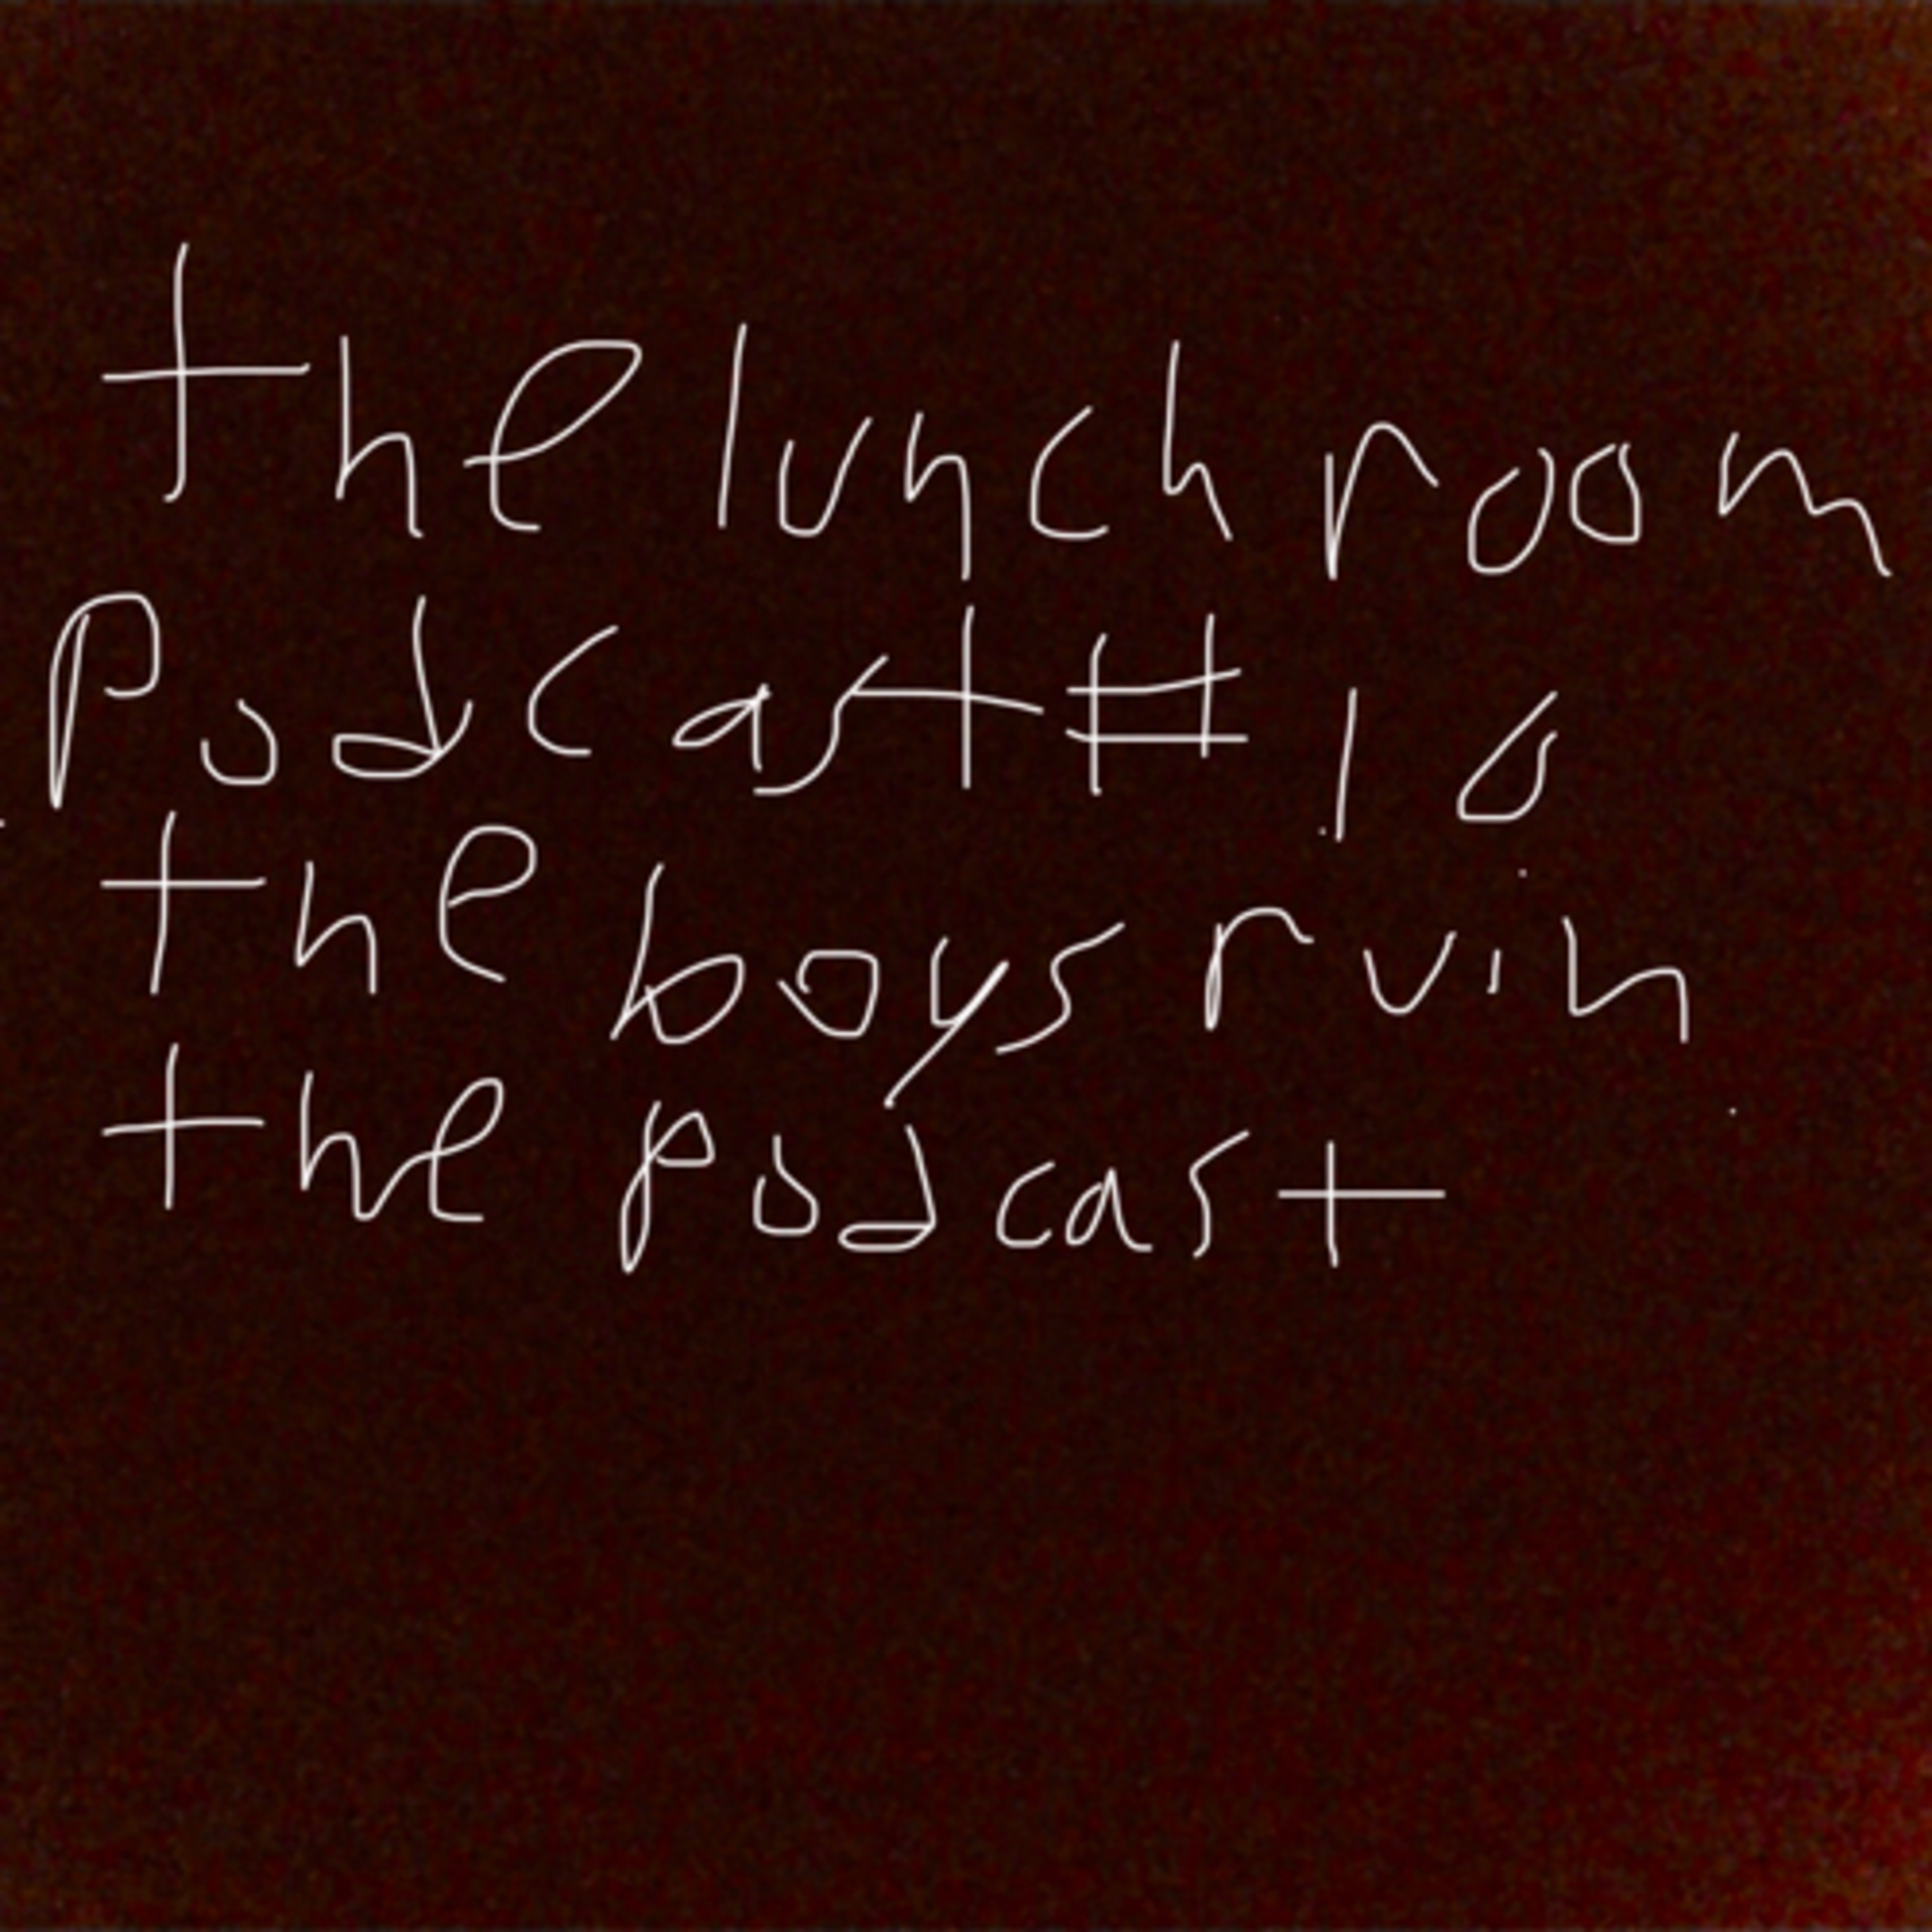 the lunch room
Podcast # 10
the boys ruin
the podcast